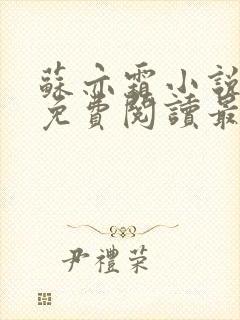 蘇亦霜小說
免費閱讀最
尹禮荣